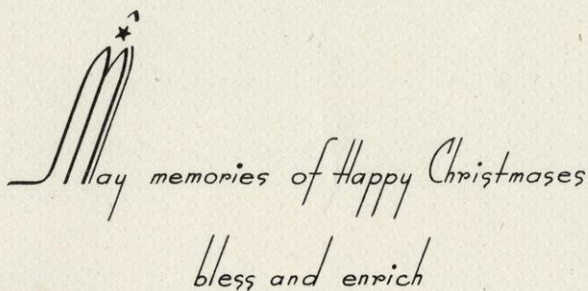 May memories of Happy Christmases
bless and enrich